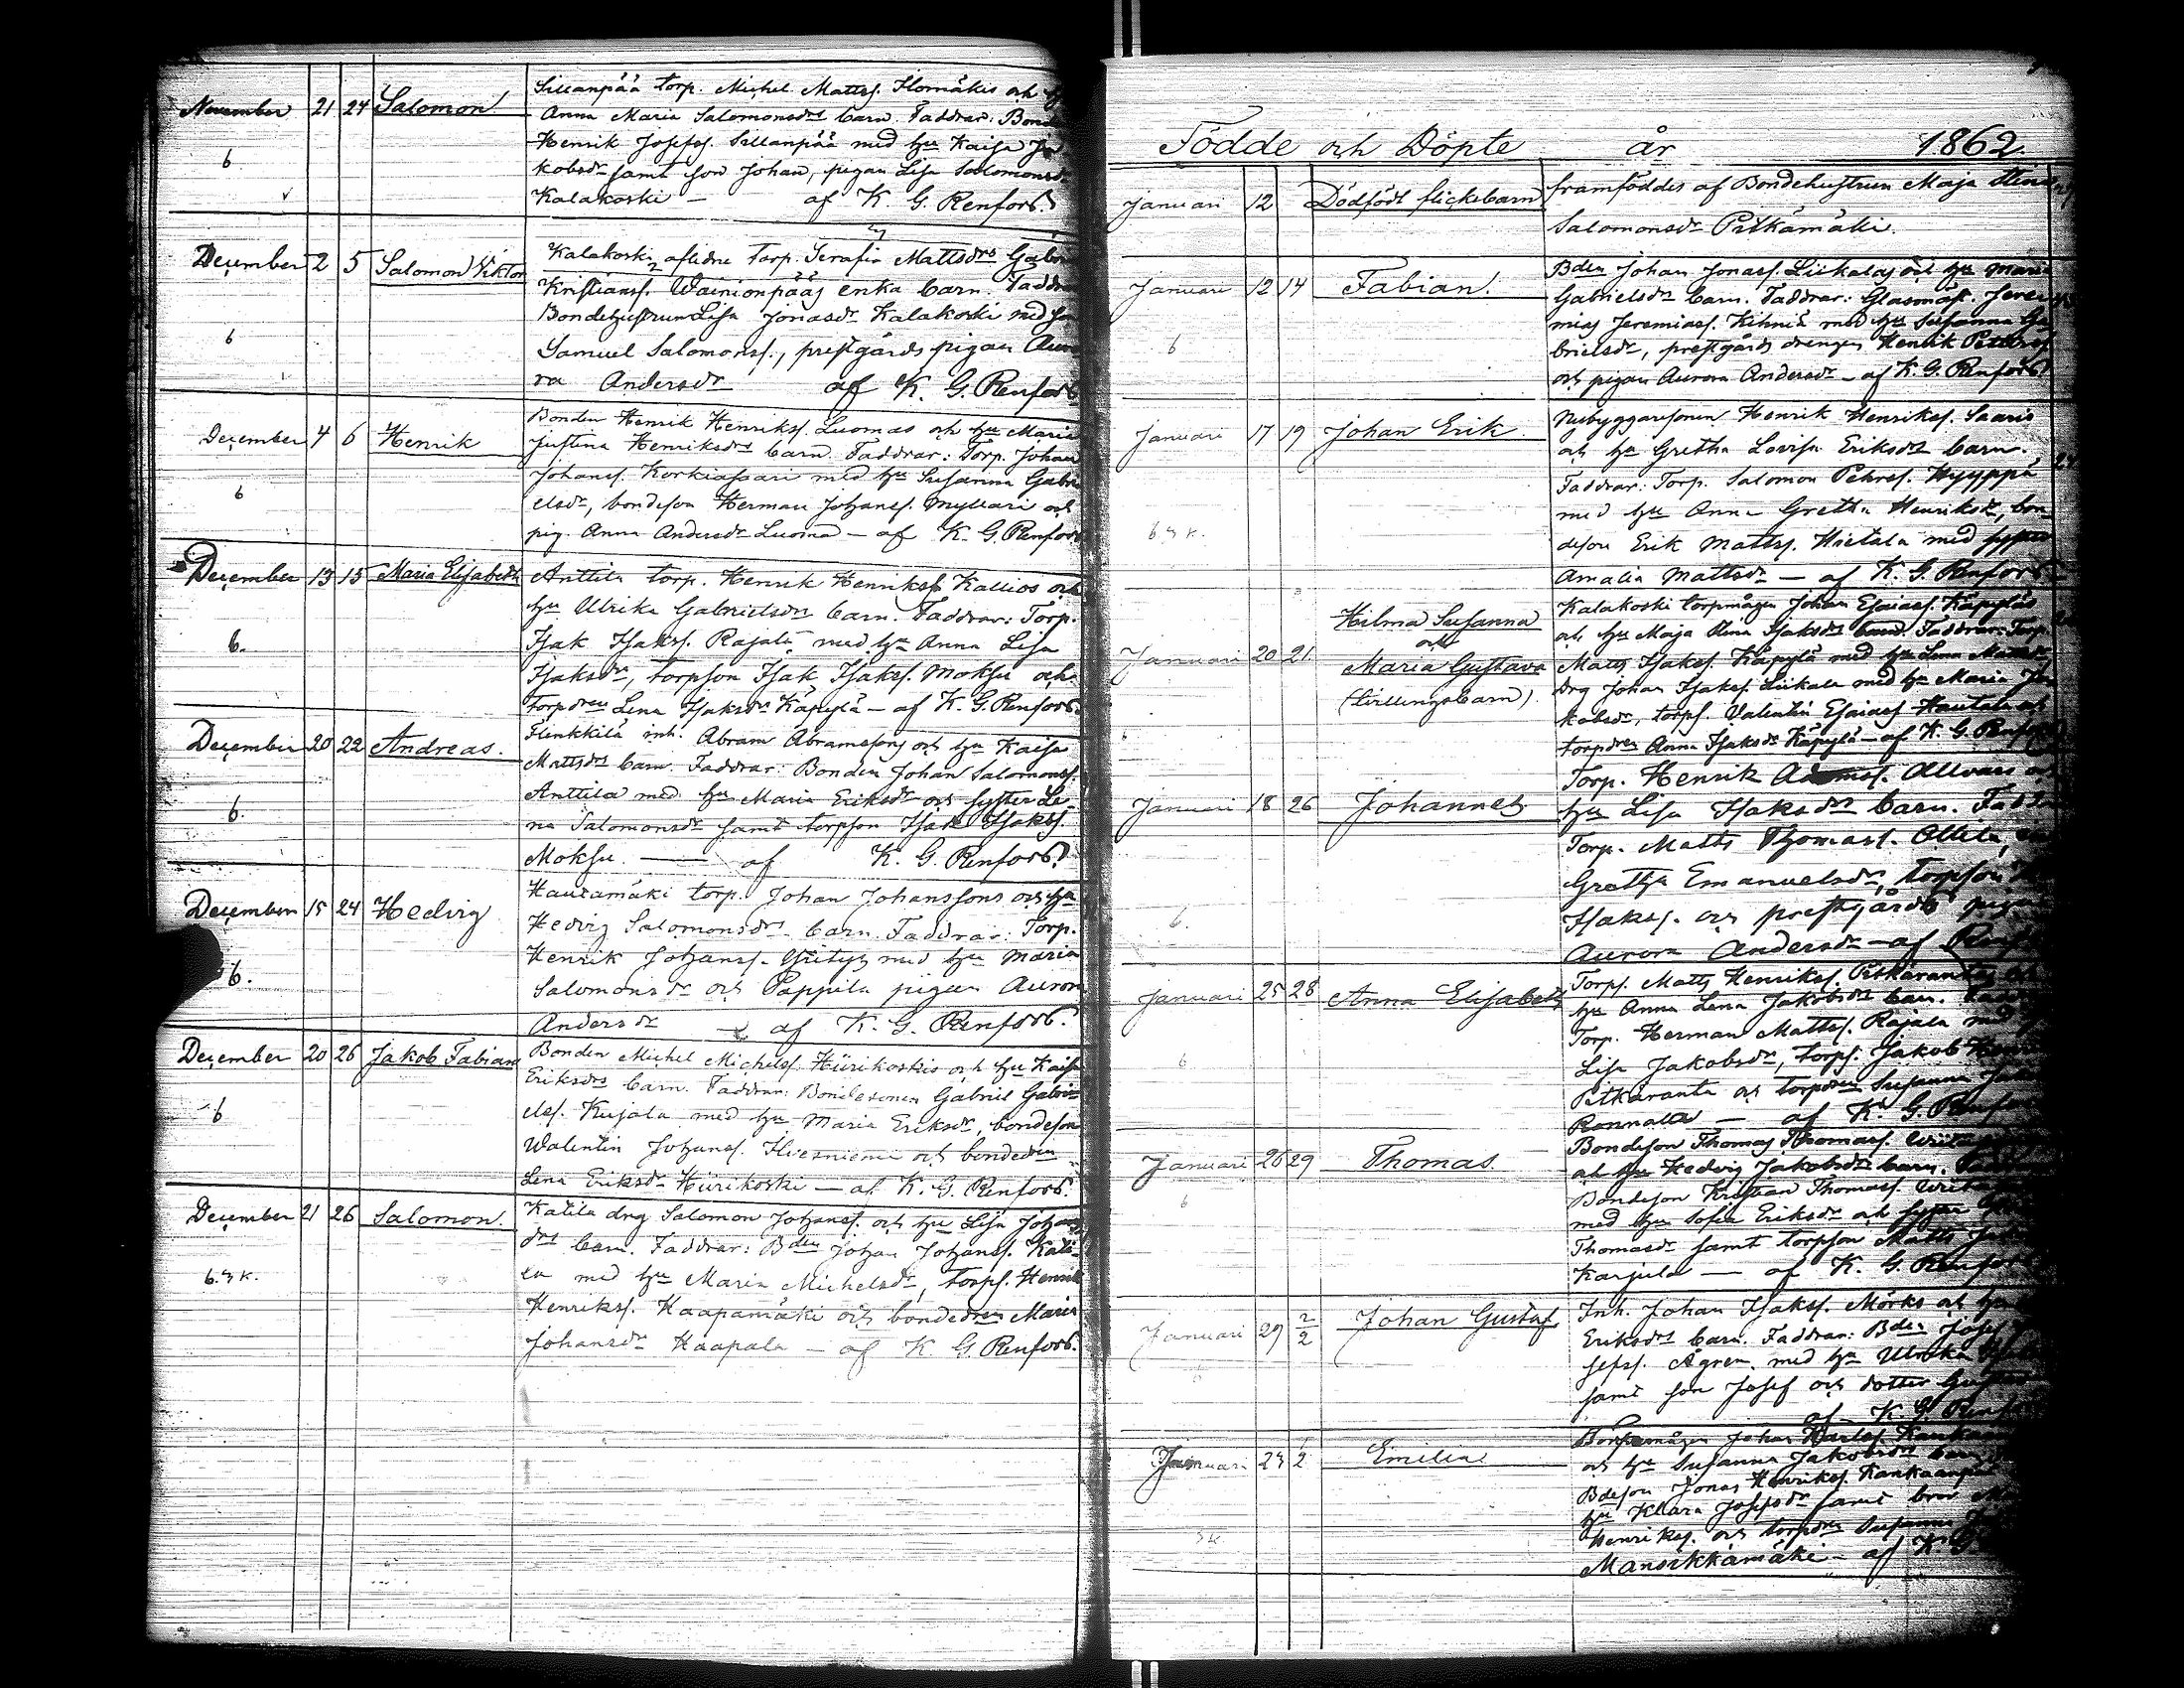 November 21 24 Salomon Sillanpää torp. Michel Mattss. Ilomäkis och
Anna Maria Salomonsdrs barn. Faddrar:
Henrik Josefss. Sillanpää med hu Kaisa
kobsdr samt son Johan, pigan Lisa Salomonsdr
6
Kalakoski — af K. G. Renfors.
December 2 5 Salomon Viktor Kalakoski aflidne torp. Serafia Mattsdrs
Kristianss. Wainionpääs enka barn.
Bondehustrun Lisa Jonasdr Kalakoski med
6
Samuel Salomonss., prestgårds pigan Auro
ra Andersdr af K. G. Renfors
December 4 6 Henrik Bonden Henrik Henrikss. Luomas och hu Maria
Justina Henriksdrs barn. Faddrar: Torp. Johan
Johanss. Korkiasaari med hu Susanna Gabri
6
elsdr, bondeson Herman Johanss. Myllari och
pig. Anna Andersdr Luoma — af K. G. Renfors
December 13 15 Maria Elisabeth Anttila torp. Henrik Henrikss. Kallios och
hu Ulrika Gabrielsdrs barn. Faddrar: Torp.
6.
Isak Isakss. Rajala med hu Anna Lisa
Isaksdr, torpson Isak Isakss. Moksu och
torpdrn Lena Isaksdr Käpylä — af K. G. Renfors.
December 20 22 Andreas. Flinkkilä inh. Abram Abramssons och hu Kaisa
Mattsdrs barn. Faddrar: Bonden Johan Salomonss.
6.
Anttila med hu Maria Eriksdr och syster Le-
na Salomonsdr samt torpson Isak Isakss.
Moksu. — af K. G. Renfors.
December 15 24 Hedvig Hautamäki torp. Johan Johanssons och hu
Hedvig Salomonsdrs barn. Faddrar: Torp.
6.
Henrik Johanss. med hu Maria
Salomonsdr och Pappila pigan Aurora
Andersdr — af K. G. Renfors.
December 20 26 Jakob Fabian Bonden Michel Michelss. Hiirikoskis och hu Kaisa
Eriksdrs barn. Faddrar: Bondesonen Gabriel Gabri-
6
elss. Kujala med hu Maria Eriksdr, bondeson
Walentin Johanss. Hiesniemi och bondedrn
Lena Eriksdr Hiirikoski — af K. G. Renfors.
December 21 26 Salomon. Katila drg Salomon Johanss. och hu Lisa Johans
drs barn. Faddrar: Bden Johan Johanss. Kati-
6. & K.
la med hu Maria Michelsdr, torps. Henrik
Henrikss. Haapamäki och bondedrn Maria
Johansdr Haapala — af K. G. Renfors.
Födde och Döpte år 1862.
Januari 12 Dödfödt flickebarn framföddes af Bondehustrun Maja Stina
Salomonsdr Pitkämäki.
Januari 12 14 Fabian. Bden Johan Jonass. Liikalas och hu Maria
Gabrielsdrs barn. Faddrar: Glasmäst. Jere
mias Jeremiass. Kihniä med hu Susanna Ga
6
brielsdr, prestgårds drengen Henrik
och pigan Aurora Andersdr — af K. G. Renfors.
Januari 17 19 Johan Erik Nybyggaresonen Henrik Henrikss. Saaris
och hu Gretha Lovisa Eriksdrs barn.
Faddrar: Torp. Salomon Pehrss. Hyyppä
med hu Anna Gretha Henriksdr, bon
6 & K.
deson Erik Mattss. Hietala med syster
Amalia Mattsdr — af K. G. Renfors
Hilma Susanna
och
Januari 20 21. Maria Gustava
(Tvillingsbarn).
Kalakoski torpmågen Johan Esaiass. Käpyläs
och hu Maja Stina Isaksdrs barn. Faddrar: Torp.
Matts Isakss. Käpylä med hu Lena
Drg Johan Isakss. Liikala med hu Maria
kobsdr, torps. Valentin Esaiass. Hautala och
torpdrn Anna Isaksdr Käpylä — af K. G.
Januari 18 26 Johannes Torp. Henrik Allvars
hu Lisa Isaksdrs barn.
Torp. Matts Thomass. Ollila,
Gretha Emanuelsdr, torpson
6.
Isakss. och prestgårds
Aurora Andersdr — af
Januari 25 28 Anna Elisabeth Torps. Matts Henrikss. Pitkäranta
hu Anna Lena Jakobsdrs barn.
Torp. Herman Mattss. Rajala med
6
Lisa Jakobsdr, torps. Jakob
Pitkäranta och torpdrn Susanna
Rannalla — af K. G.
Januari 26 29 Thomas. Bondeson Thomas Thomass.
och hu Hedvig Jakobsdrs barn.
6
Bondeson Kristian Thomass.
med hu Sofia Eriksdr och syster
Thomasdr samt torpson Matts
Karjula — af K. G.
Januari 29 2/2 Johan Gustaf Inh. Johan Isakss. Mörks och
Eriksdrs barn. Faddrar: Bden Josef
sefss. Ågren med hu Ulrika
samt son Josef och dotter
af K. G.
Januari 23 2 Emilia Torpmågen Johan
och hu Susanna Jakobsdrs
Bdeson Jonas Henrikss. Kankaanpää
hu Klara Josefsdr samt bror
Henrikss. och torpdrn Susanna
Mansikkamäki — af K. G.